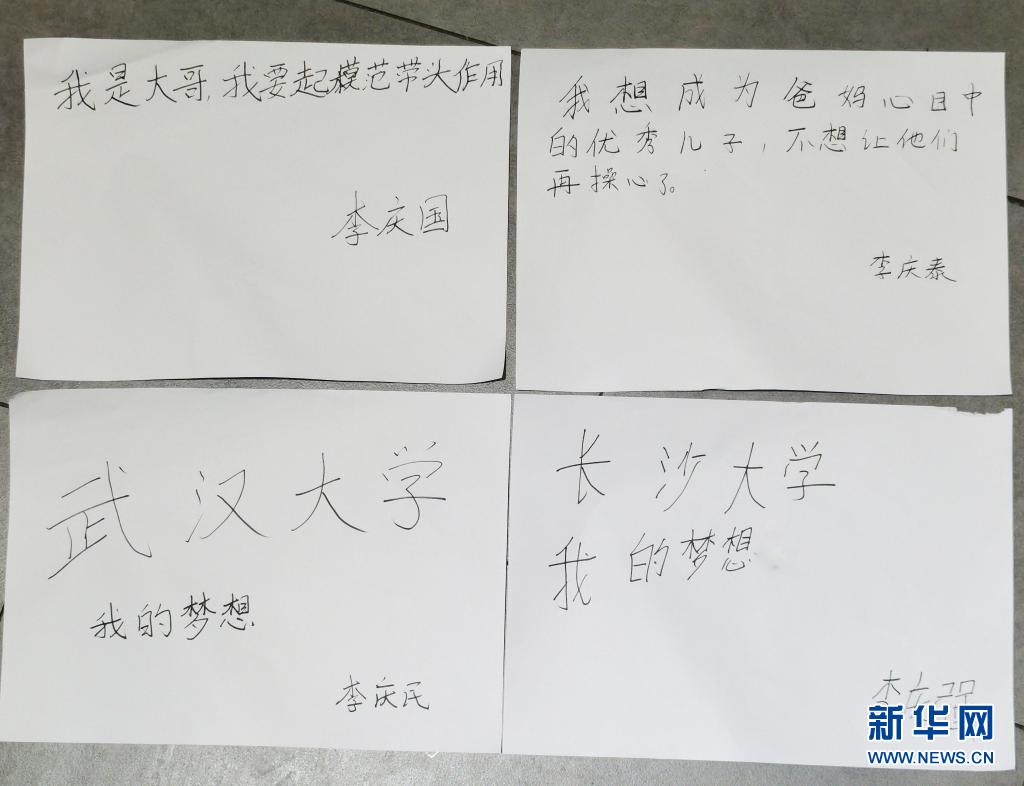 我是大哥,我要起模范带头作用
李庆国
我想成为爸妈心目中
的优秀儿子,不想让他们
再操心了。
李庆泰
武汉大学
我的梦想
李庆民
长沙大学
我的梦想
李庆强
新华网
WWW.NEWS.CN